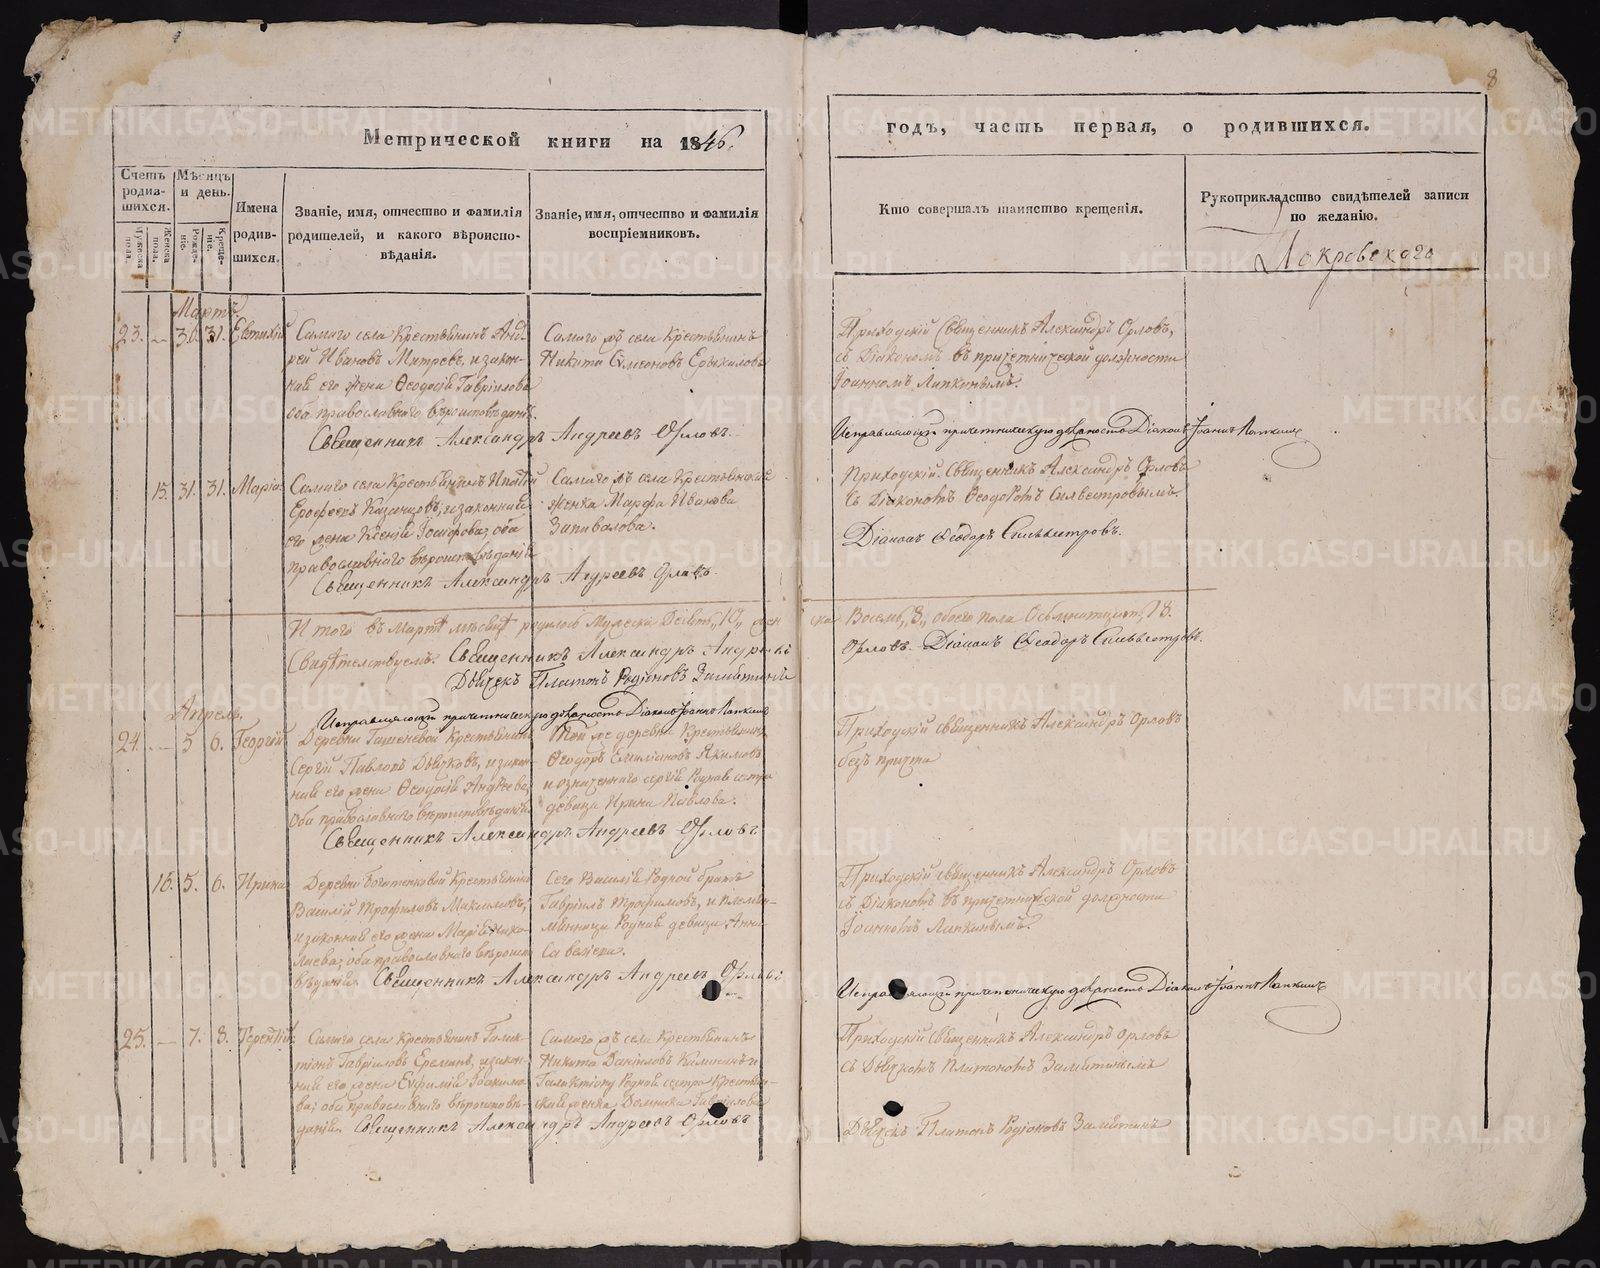 8
Метрической книги на 1846.
годъ, часть первая, о родившихся.
Счетъ родив-шихся.
Мѣсяцъ и день.
Имена родив-шихся.
Званіе, имя, отчество и фамилія родителей, и какого вѣроиспо-вѣданія.
Званіе, имя, отчество и фамилія воспріемниковъ.
Кто совершалъ таинство крещенія.
Рукоприкладство свидѣтелей записи по желанію.
Мужеска пола.
Женска пола.
Рожде-ніе.
Креще-ніе.
Покровскаго
Мартъ
23. — 30. 31. Евтихій
Самаго села Крестьянинъ Анд-
рей Ивановъ, и закон-
ная его жена Ѳеодосія Гавріилова
оба православнаго вѣроисповѣданія.
Самаго жъ села Крестьянинъ
Никита Симеоновъ
Священникъ Александръ Андреевъ Орловъ.
Приходскій Священникъ Александръ Орловъ,
съ Діакономъ въ причетнической должности
Іоанномъ Лапкинымъ.
Исправляющій причетническую должность Діаконъ Іоаннъ Лапкинъ
15. 31. 31. Марія
Самаго села Крестьянинъ Ипатій
Ерофеевъ Казанцовъ, и законная
его жена Ксенія Іосифова, оба
православнаго вѣроисповѣданія
Самаго жъ села Крестьянская
женка Марфа Иванова
Запивалова.
Священникъ Александръ Андреевъ Орловъ.
Приходскій Священникъ Александръ Орловъ
съ Діакономъ Ѳеодоромъ Сильвестровымъ.
Діаконъ Ѳеодоръ Сильвестровъ.
Итого въ Мартѣ мѣсяцѣ родилось Мужеска Десять, 10, жен
ска Восемь, 8, обоего пола Осьмнатцать, 18.
Свидѣтельствуемъ. Священникъ Александръ Андреевъ
Орловъ. Діаконъ Ѳеодоръ Сильвестровъ.
Дьячекъ Платонъ Родіоновъ Замятинъ
Исправляющій причетническую должность Діаконъ Іоаннъ Лапкинъ
Апрель.
24. — 5 6. Георгій
Деревни Крестьянинъ
Сергій Павловъ Дьячковъ, и закон-
ная его жена Ѳеодосія Андреева,
Оба православнаго вѣроисповѣданія.
Той же деревни Крестьянинъ
Ѳеодоръ Емиліановъ Якимовъ
и означеннаго Сергія Родная сестра
девица Ирина Павлова.
Священникъ Александръ Андреевъ Орловъ
Приходскій священникъ Александръ Орловъ
безъ причта
16. 5. 6. Ирина
Деревни Крестьянинъ
Василій Трофимовъ Максимовъ,
и законная его жена Марія Нико-
лаева; оба православнаго вѣроисп
вѣданія. Священникъ Александръ Андреевъ Орловъ
Сего Василія Родной братъ
Гавріилъ Трофимовъ, и племян-
ница Родная девица Анна
Савельева.
Приходскій священникъ Александръ Орловъ
съ Діакономъ въ причетнической должности
Іоанномъ Лапкинымъ.
Исправляющій причетническую должность Діаконъ Іоаннъ Лапкинъ
25. — 7. 8. Терентій
Самаго села Крестьянинъ Галак-
тіонъ Гавріиловъ Ереминъ, и закон-
ная его жена Евфимія Іоакимо-
ва; оба православнаго вѣроисповѣ-
данія. Священникъ Александръ Андреевъ Орловъ
Самаго жъ села Крестьянинъ
Никита Даніиловъ Калининъ и
Галактіону Родная сестра Крестьян-
ская женка Домника Гавріилова
Приходскій Священникъ Александръ Орловъ
съ Дьячкомъ Платономъ Замятинымъ
Дьячекъ Платонъ Родіоновъ Замятинъ